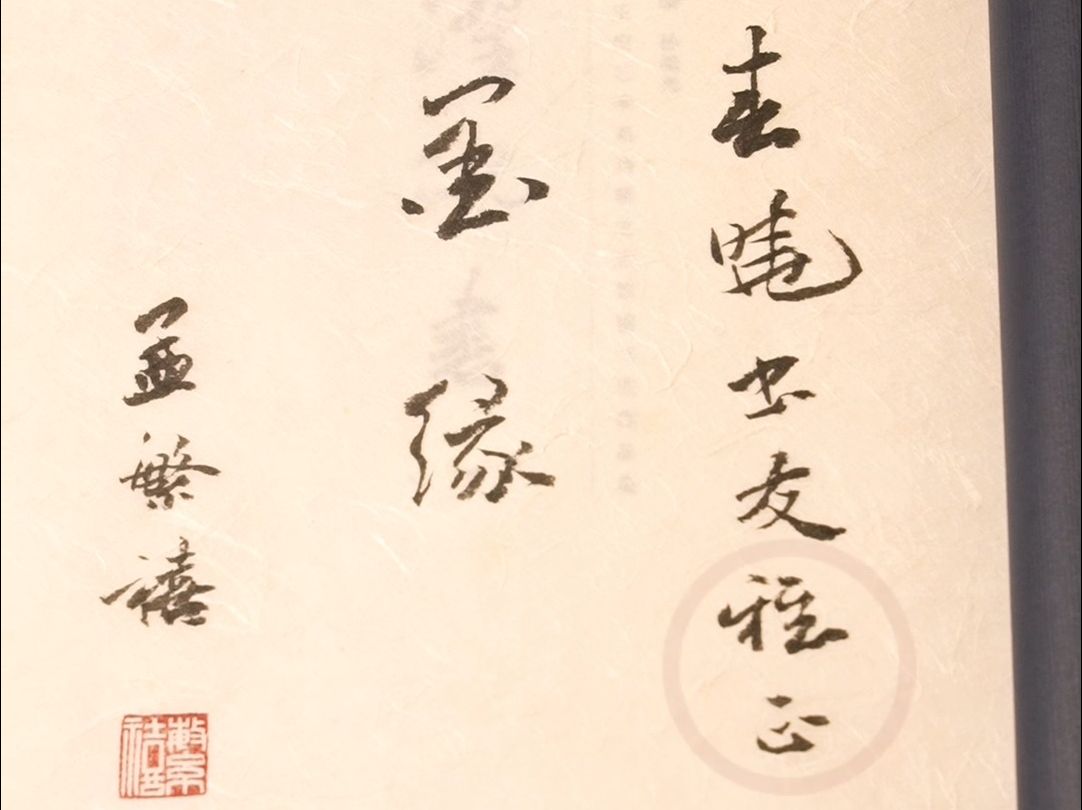 春曉书友雅正
墨缘
孟繁禧
繁禧